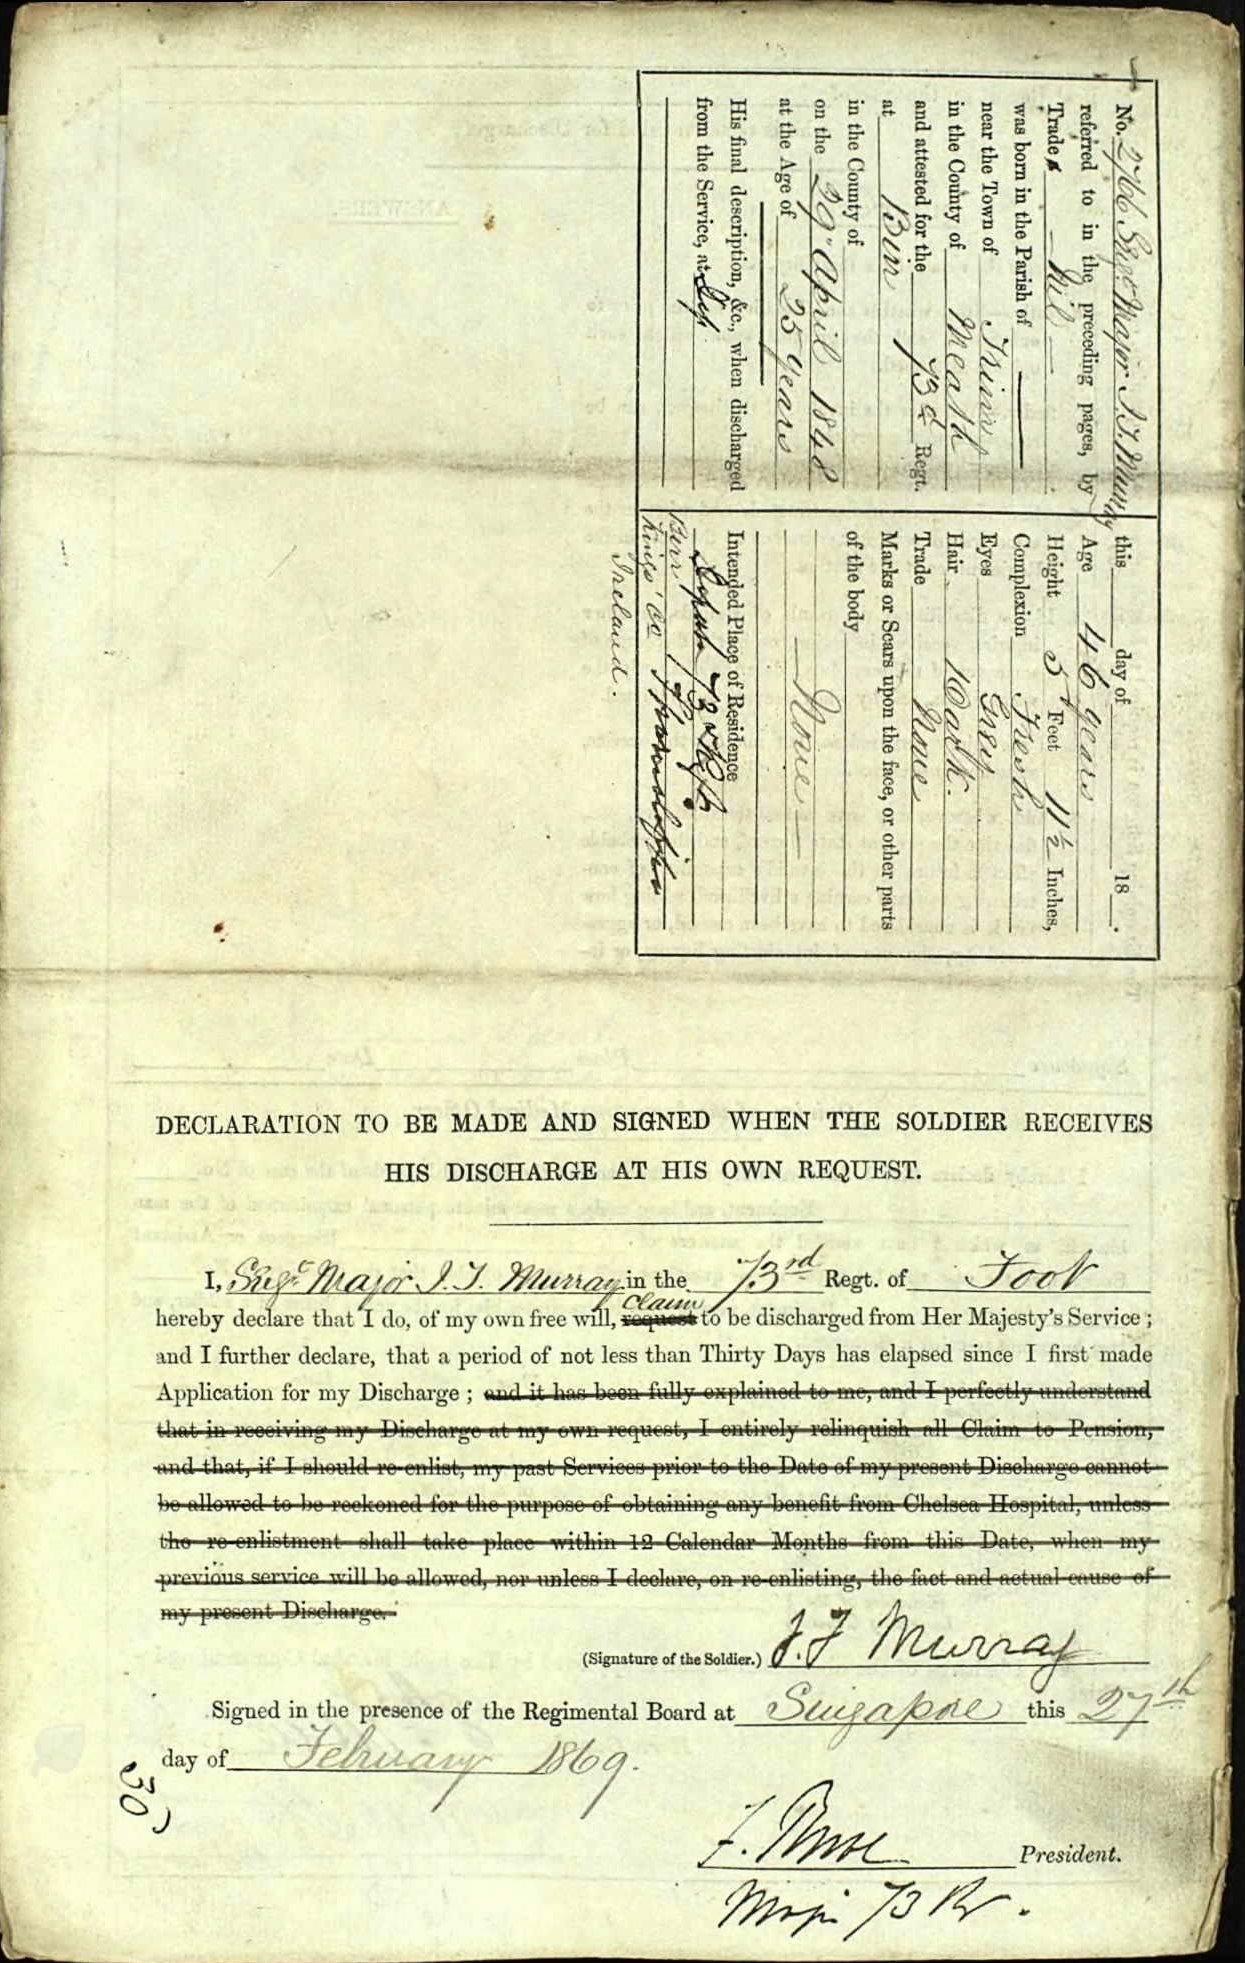 No. 2766 Sergt Major J. F. Murray
referred to in the preceding pages, by
Trade Nil
was born in the Parish of
near the Town of Trim
in the County of Meath
and attested for the 73d Regt.
at Birr
in the County of
on the 29 April 1848
at the Age of 25 years
His final description, &c., when discharged
from the Service, at
this day of 18 .
Age 46 years
Height 5 Feet 11½ Inches,
Complexion Fresh
Eyes Grey
Hair Dark.
Trade None
Marks or Scars upon the face, or other parts
of the body
None
Intended Place of Residence
Depot 73
Birr
Kings Co
Ireland.
DECLARATION TO BE MADE AND SIGNED WHEN THE SOLDIER RECEIVES
HIS DISCHARGE AT HIS OWN REQUEST.
I, Sergt Major J. F. Murray in the 73rd Regt. of Foot
claim
hereby declare that I do, of my own free will, request to be discharged from Her Majesty's Service ;
and I further declare, that a period of not less than Thirty Days has elapsed since I first made
Application for my Discharge ; and it has been fully explained to me, and I perfectly understand
that in receiving my Discharge at my own request, I entirely relinquish all Claim to Pension,
and that, if I should re-enlist, my past Services prior to the Date of my present Discharge cannot
be allowed to be reckoned for the purpose of obtaining any benefit from Chelsea Hospital, unless
the re-enlistment shall take place within 12 Calendar Months from this Date, when my
previous service will be allowed, nor unless I declare, on re-enlisting, the fact and actual cause of
my present Discharge.
(Signature of the Soldier.) J. F Murray
Signed in the presence of the Regimental Board at Singapore this 27th
day of February 1869.
30
President.
Major 73 Rt.